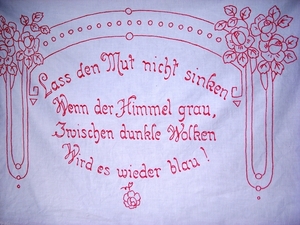 Lass den Mut nicht sinken
Wenn der Himmel grau,
Zwischen dunkle Wolken
Wird es wieder blau!